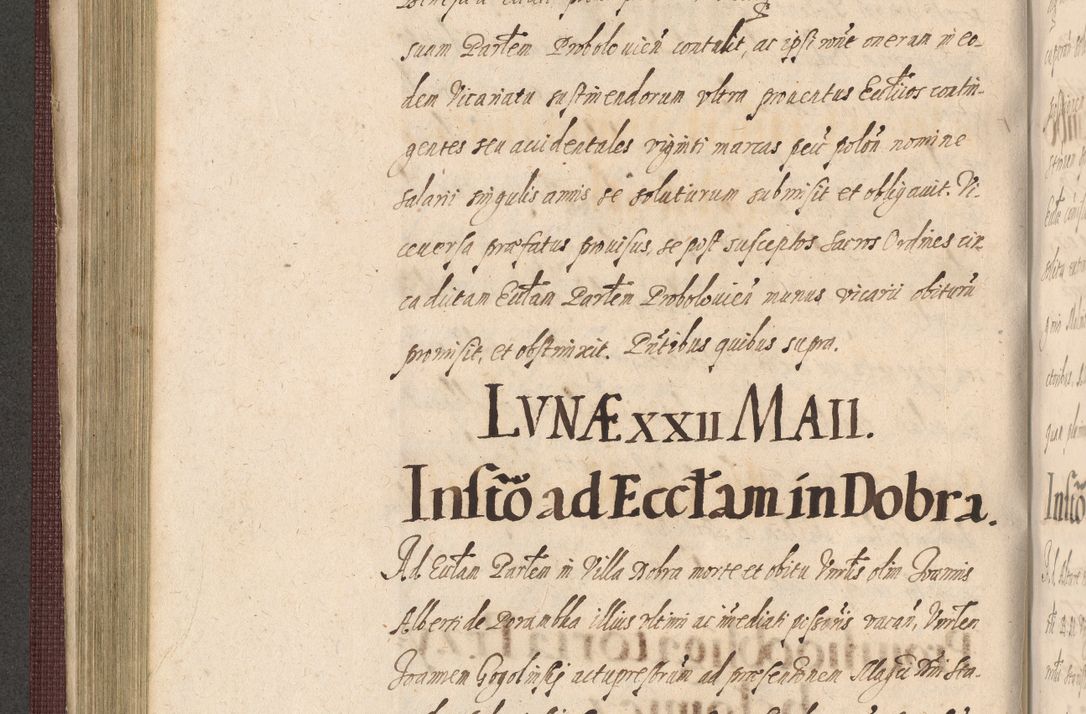 suam Parłem Proboloviceń contulit, ac ipsi rõne onerum in eo-
dem Vicariatu sustinendorum vltra prouentus Ecclicos contin-
gentes seu accidentales viginti marcas pecũ polon̄ nomine
salarii singulis annis se soluturum submisit et obligauit. Vi-
ceuersa præfatus prouisus, se post susceptos Sacros Ordines cir
ca dictam Ecłam Parłem Proboloviceń munus vicarii obiturũ
promisit, et obstrinxit. Pñtibus quibus supra.
LVNÆ XXII MAII.
Instõ ad Eccłam in Dobra.
Ad Ecłam Parłem in Villa Dobra morte et obitu Vnrłis olim Joannis
Alberti de Porambka illius vltimi ac immediati possoris vacañ, Vnrłem
Joannem Gogolinski actu præsbrum ad præsentõnem Magci Dñi Sta-